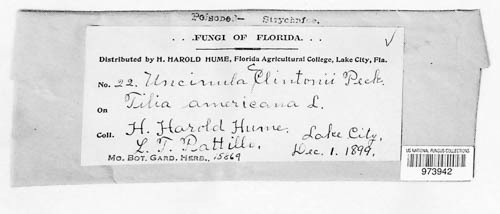 Poisoned - Strychnine.
. . .FUNGI OF FLORIDA. . .
Distributed by H. HAROLD HUME, Florida Agricultural College, Lake City, Fla.
No. 22. Uncinula Clintonii Peck.
On Tilia americana L.
Coll. H. Harold Hume. Lake City,
L. T. Pattillo. Dec. 1. 1899.
MO. BOT. GARD. HERB., 15669
US NATIONAL FUNGUS COLLECTIONS
973942